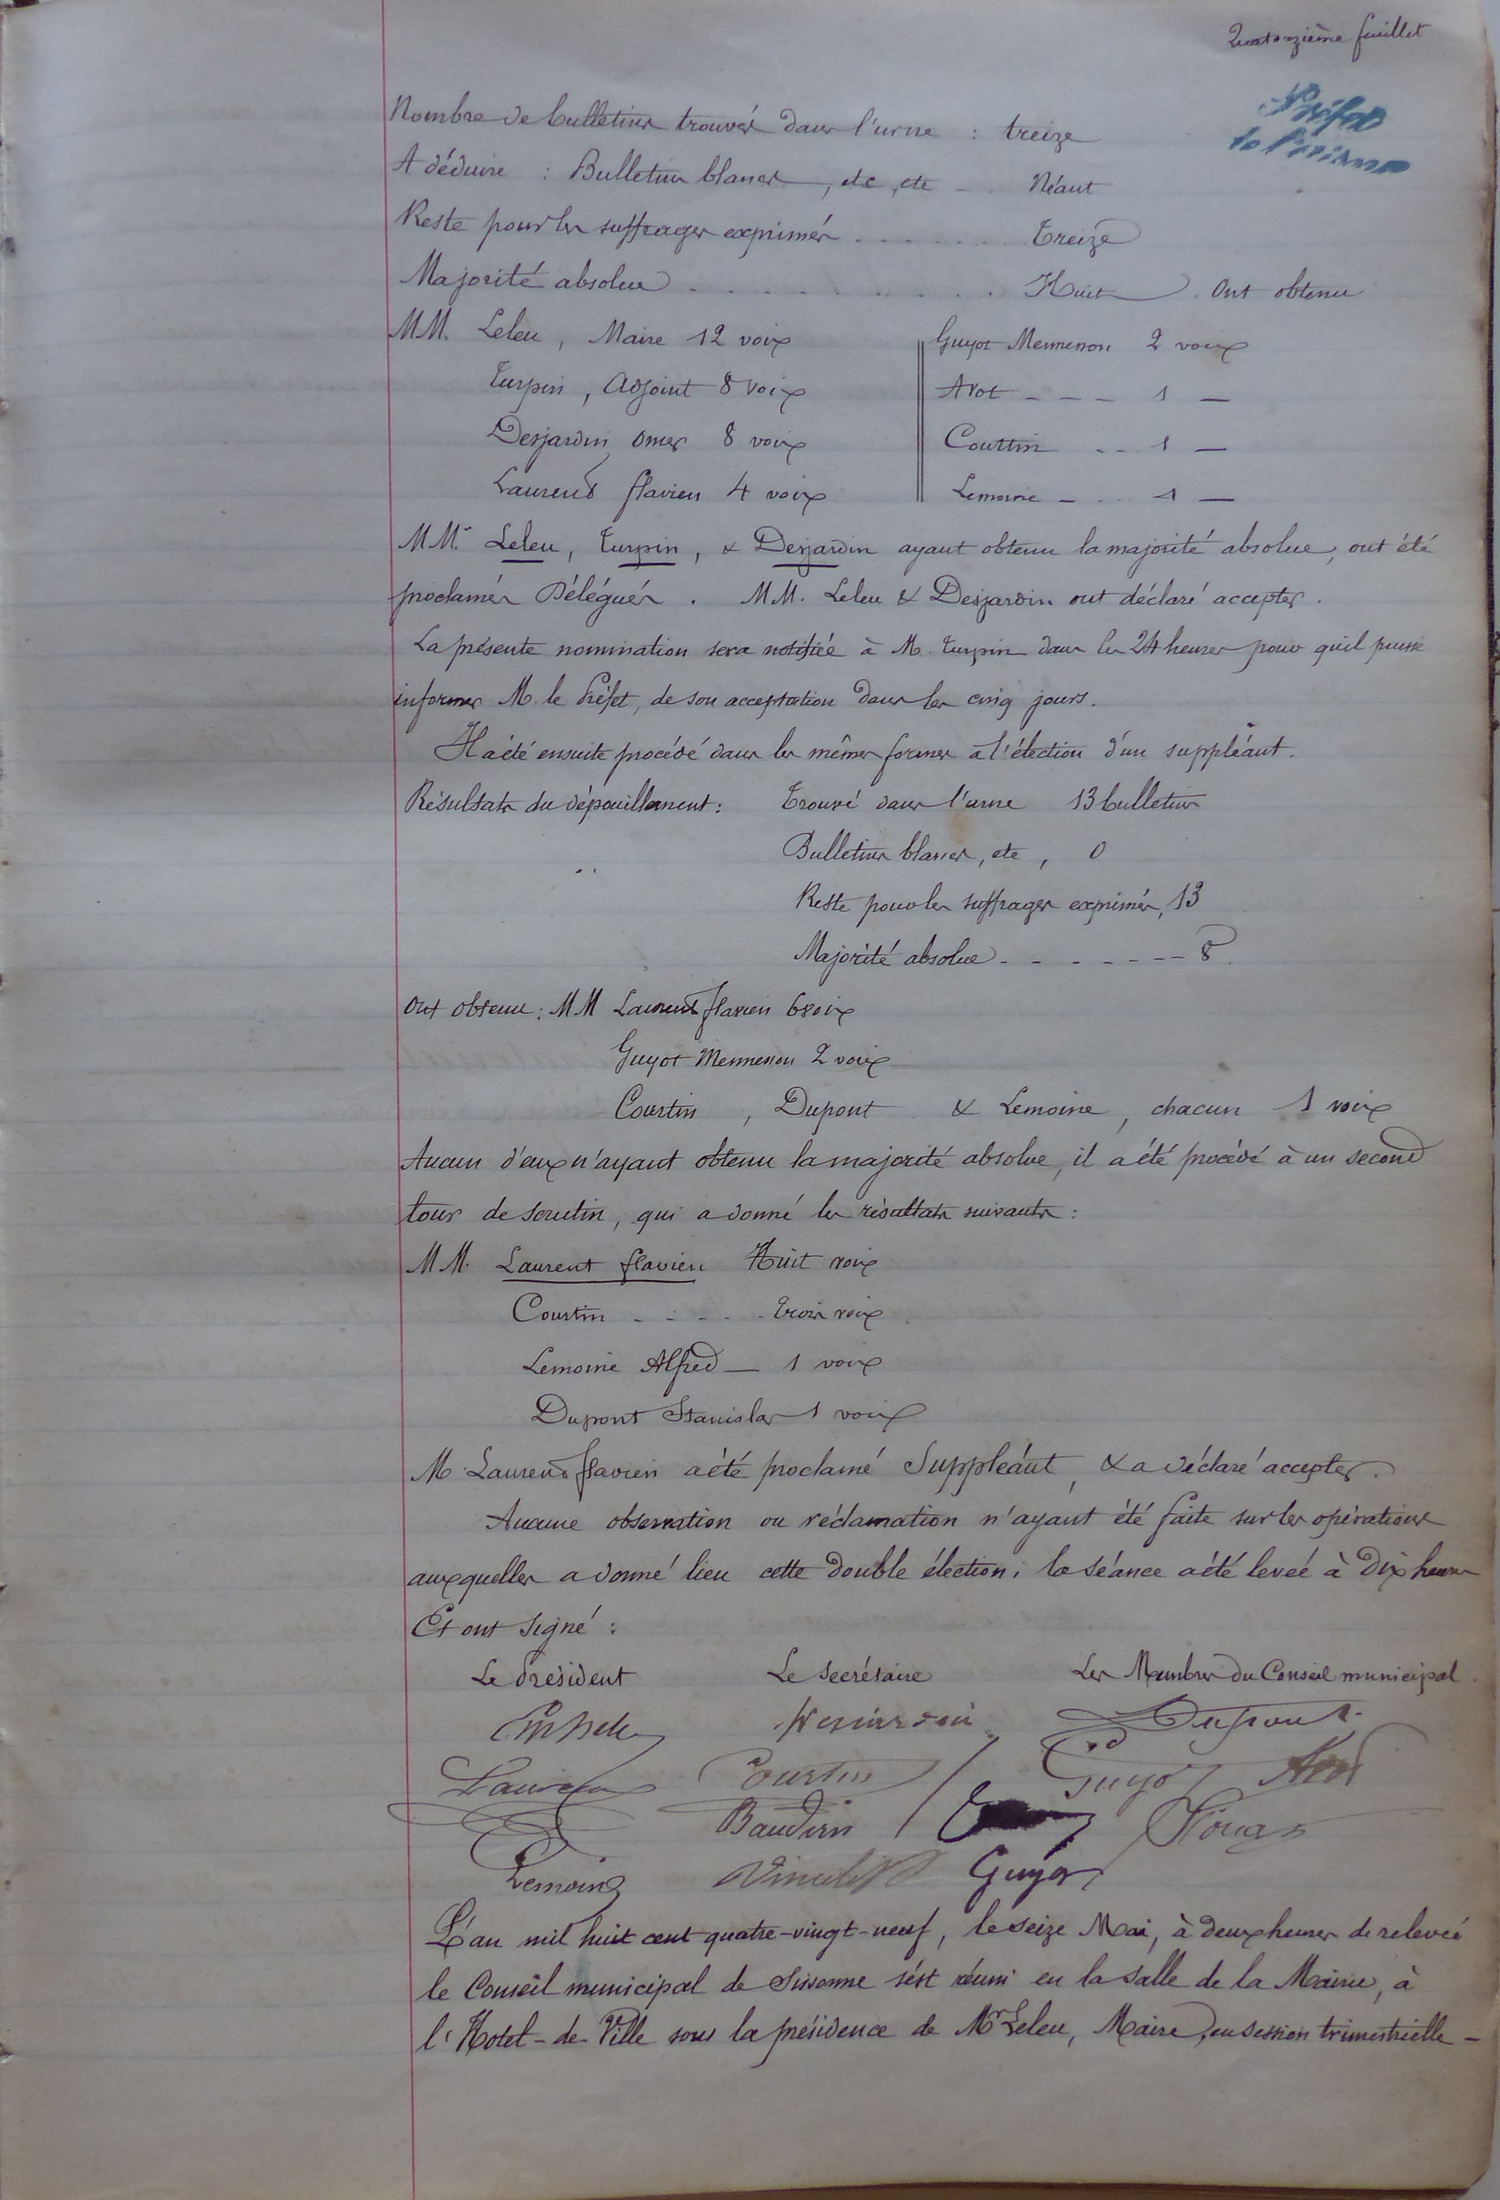 Quatorzième feuillet
Nombre de bulletins trouvés dans l'urne : treize
A déduire : Bulletins blancs, etc, etc - Néant
Reste pour les suffrages exprimés . . . . . . . Treize
Majorité absolue . . . . . . . . . . Huit . Ont obtenu
MM. Leleu, Maire 12 voix
Turpin, Adjoint 8 voix
Desjardin Omer 8 voix
Laurent flavien 4 voix
Guyot Mennesson 2 voix
Arot - - - 1 -
Courtin . . . 1 -
Lemoine - . . . 1 -
MM. Leleu, Turpin, & Desjardin ayant obtenu la majorité absolue, ont été
proclamés Délégués. MM. Leleu & Desjardin ont déclaré accepter.
La présente nomination sera notifiée à M. Turpin dans les 24 heures pour qu'il puisse
informer M. le Préfet, de son acceptation dans les cinq jours.
Il a été ensuite procédé dans les mêmes formes à l'élection d'un suppléant.
Résultats du dépouillement : Trouvé dans l'urne 13 bulletins
Bulletins blancs, etc, 0
Reste pour les suffrages exprimés, 13
Majorité absolue - - - - - - - 8.
Ont obtenu : MM Laurent flavien 6 voix
Guyot Mennesson 2 voix
Courtin, Dupont & Lemoine, chacun 1 voix
Aucun d'eux n'ayant obtenu la majorité absolue, il a été procédé à un second
tour de scrutin, qui a donné les résultats suivants :
MM. Laurent flavien Huit voix
Courtin - . - . . . Trois voix
Lemoine Alfred — 1 voix
Dupont Stanislas 1 voix
M. Laurent flavien a été proclamé Suppléant, & a déclaré accepter.
Aucune observation ou réclamation n'ayant été faite sur les opérations
auxquelles a donné lieu cette double élection, la séance a été levée à dix heures
Et ont signé :
Le Président Le Secrétaire Les Membres du Conseil municipal.
Dupont
Courtin Guyot Arot
Baudin
Lemoine Guyot
L'an mil huit cent quatre-vingt-neuf, le seize Mai, à deux heures de relevée
le Conseil municipal de Sissonne s'est réuni en la salle de la Mairie, à
l'Hotel-de-Ville sous la présidence de Mr Leleu, Maire, en session trimestrielle -